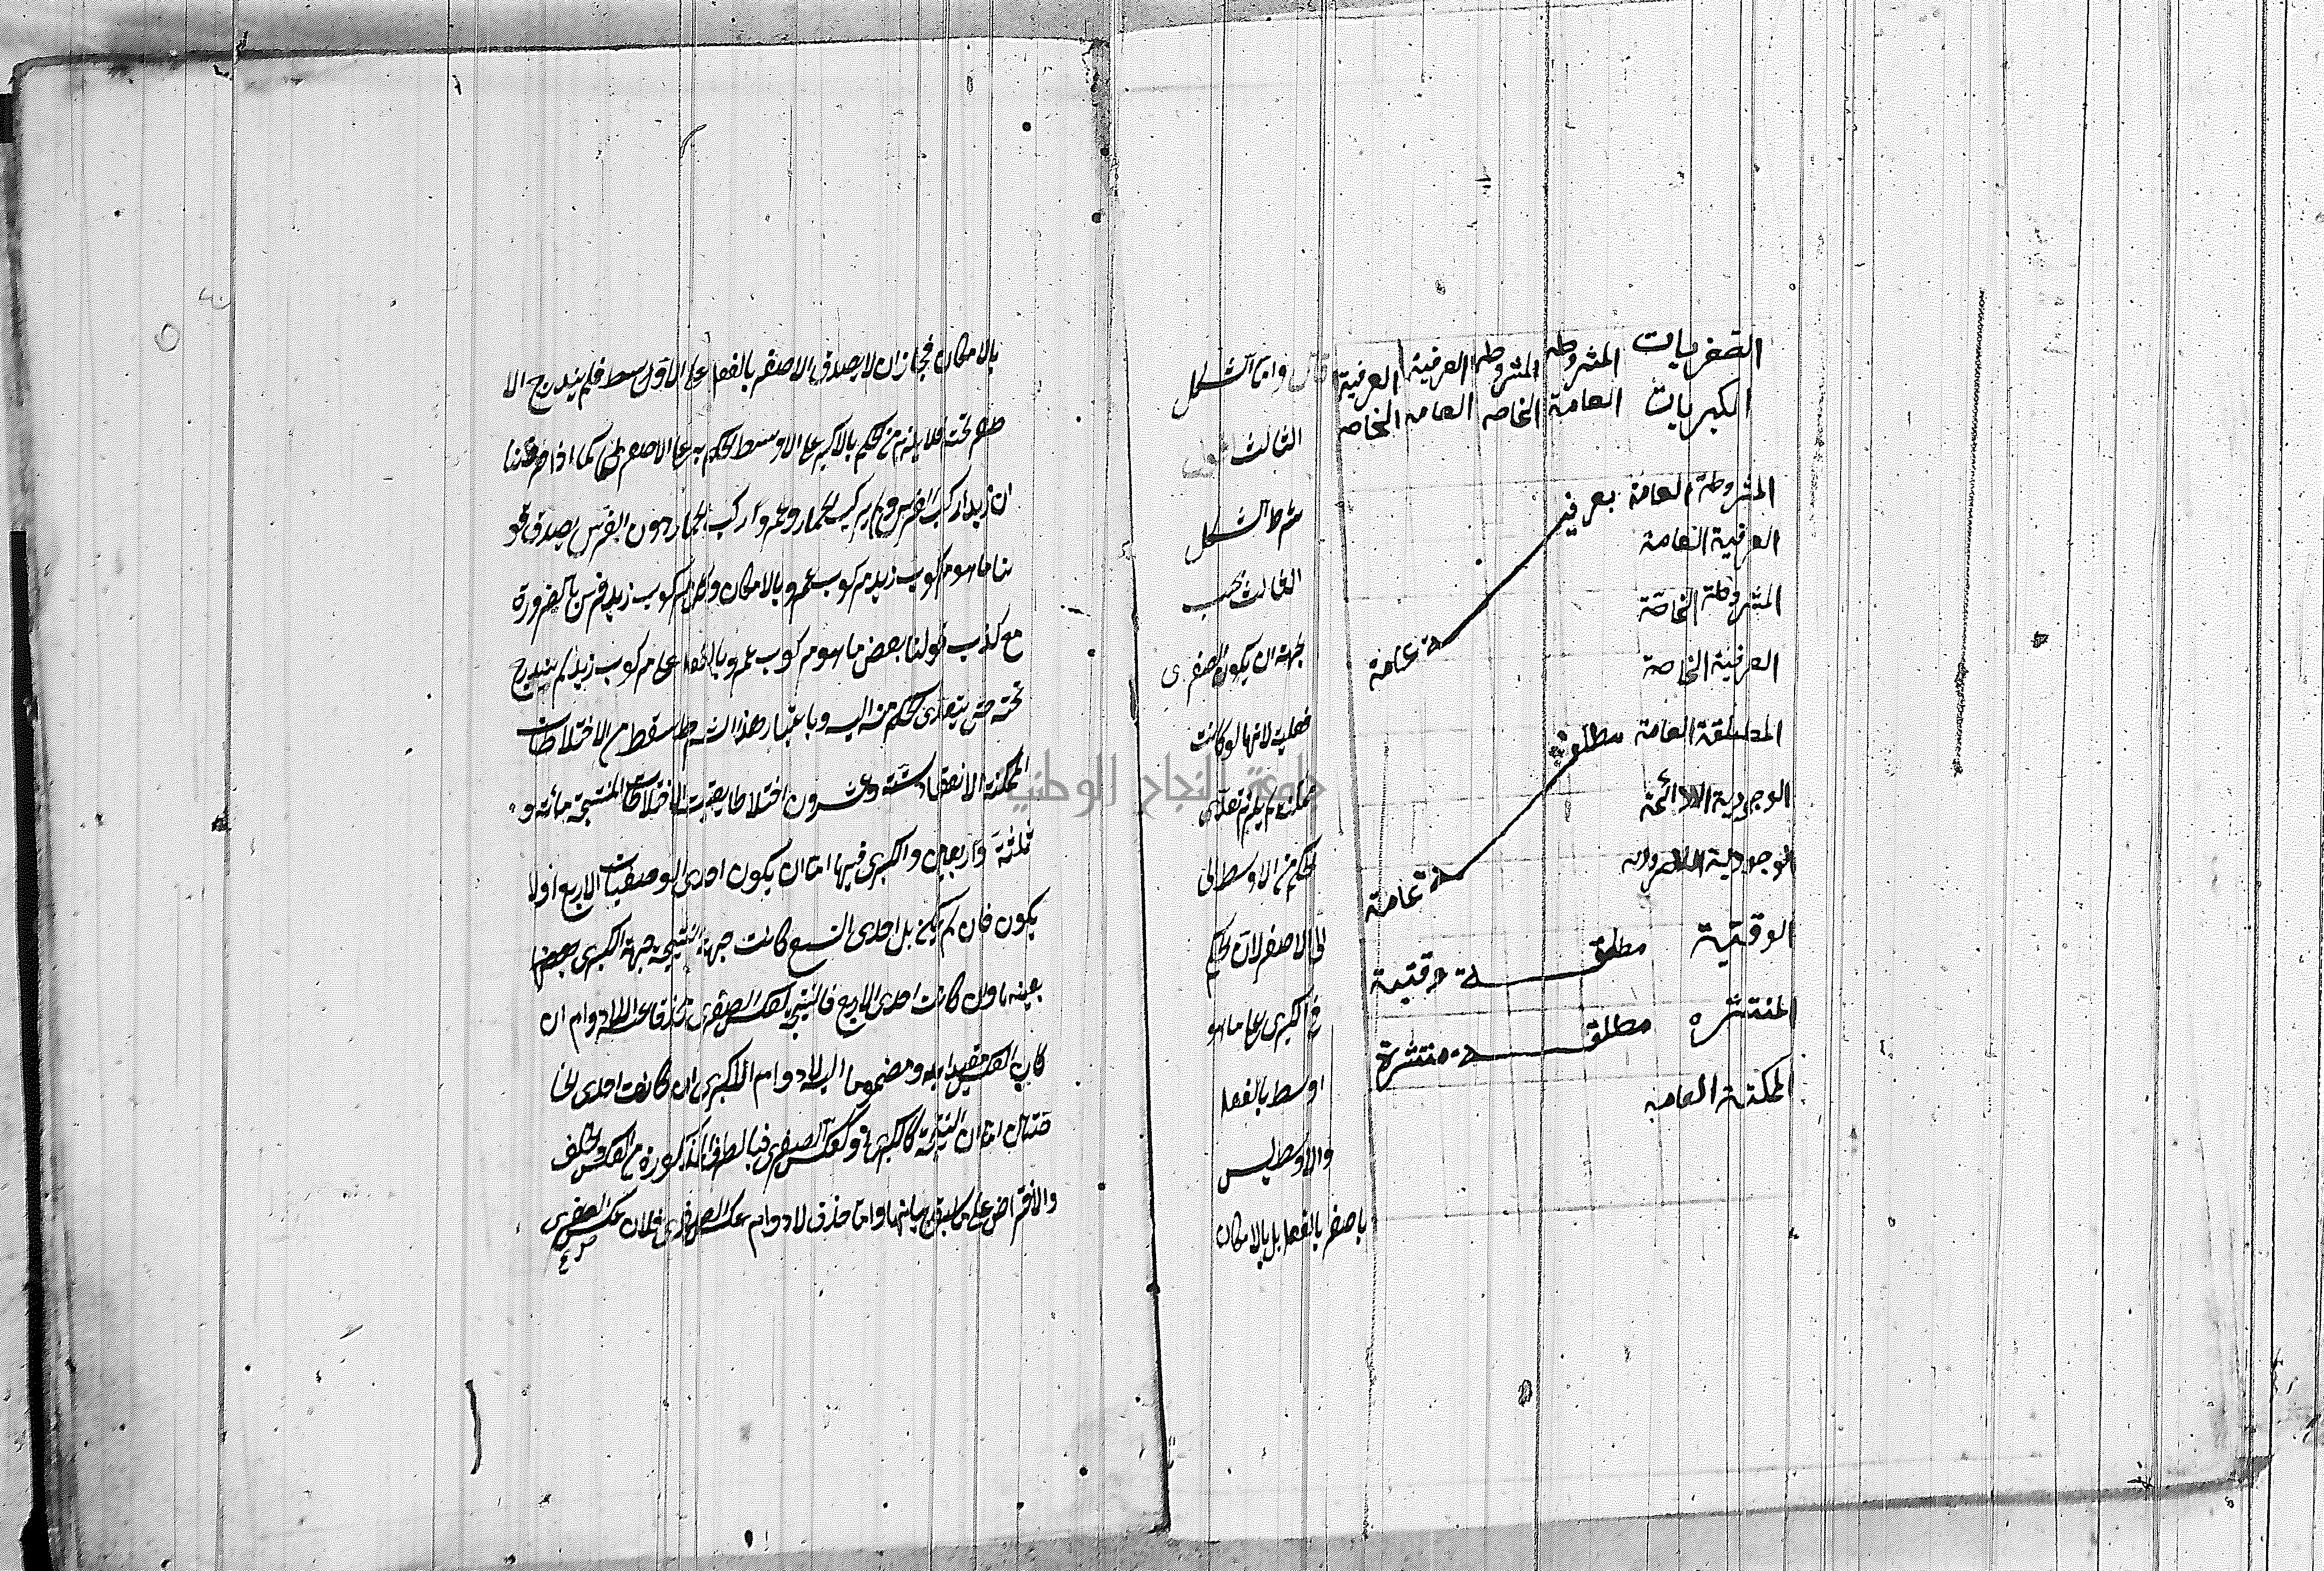 الصغريات المشروطة المشروطة العرفية العرفية
الكبريات العامة الخاصه العامه الخاصه
المشروطة العامة بعرفيـ
العرفية العامة
المشروطة الخاصة
ـة عامة
العرفية الخاصة
المطلقة العامة مطلقـ
الوجودية اللادائمة
الوجودية اللاضرورية
ـة عامة
الوقتية مطلقـــة وقتية
المنتشره مطلقـــة منتشرة
الممكنة العامه
قال واما الشكل
الثالث
شرط الشكل
الثالث بحسب
جهته ان يكون الصغرى
فعلية لانها لو كانت
ممكنة لم يلزم تعدى
الحكم من الاوسط الى
الى الاصغر لان الحكم
فى الكبرى على ما هو
اوسط بالفعل
والاوسط ليس
باصغر بالفعل بل بالامكان
بالامكان فجاز ان لا يصدق الاصغر بالفعل على الاوسط فلم يندرج الا
صغر تحته فلا يلزم من الحكم بالاكبر على الاوسط الحكم به على الاصغر كما اذا فرضنا
ان زيدا ركب الفرس ولم يركب الحمار وعمروا ركب الحمار دون الفرس يصدق قو
لنا ما هو مركوب زيد مركوب عمرو بالامكان وكل مركوب زيد فرس بالضرورة
مع كذب قولنا بعض ما هو مركوب عمرو بالفعل على مركوب زيد لم يندرج
تحته حتى يتعدى الحكم منه اليه وباعتبار هذا الشرط سقط من الاختلاطات
الممكنة الانعقاد ستة وعشرون اختلاطا بقيت الاختلاطات المنتجة مائة و
ثلثة واربعين والكبرى فيها اما ان يكون احدى الوصفيات الاربع اولا
يكون فان لم يكن بل احدى التسع كانت جهة النتيجة جهة الكبرى بعضها
بعينه وان كانت احدى الاربع فالنتيجة كعكس الصغرى محذوفا عنه اللادوام ان
كان العكس مقيدا به ومضموما اليه لا دوام الكبرى ان كانت احدى الخا
صتين اما ان النتيجة كالكبرى او كعكس الصغرى فبالطرق المذكورة من العكس والخلف
والافتراض على ما سبق بيانها واما حذف لا دوام عكس الصغرى فلان عكس الصغرى